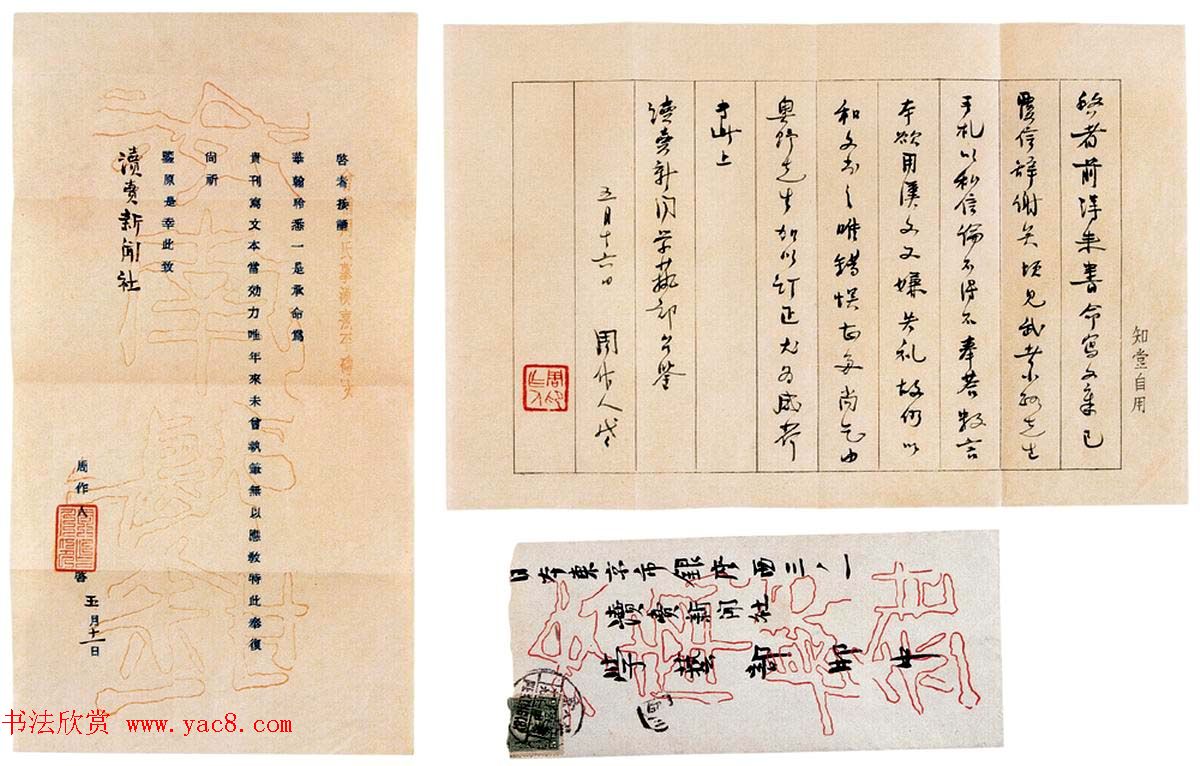 啓者接讀
華翰聆悉一是承命爲
貴刊寫文本當効力唯年來未曾執筆無以應敎特此奉復
尙祈
鑒原是幸此致
讀賣新聞社
周作人 啓 五月十一日
知堂自用
啓者前得来書命寫文章已
覆信辞謝矣頃見武者小路先生
手札以私信倫不得不奉答数言
本欲用漢文又嫌失礼故仍以
和文書之唯錯悞甚多尚乞由
奥野先生加以訂正尤为感荷
專此上
讀賣新聞学藝部台鑒
五月十六日 周作人啓
日本東京市銀座西三ノ一
讀賣新聞社
学藝部 御中
书法欣赏 www.yac8.com